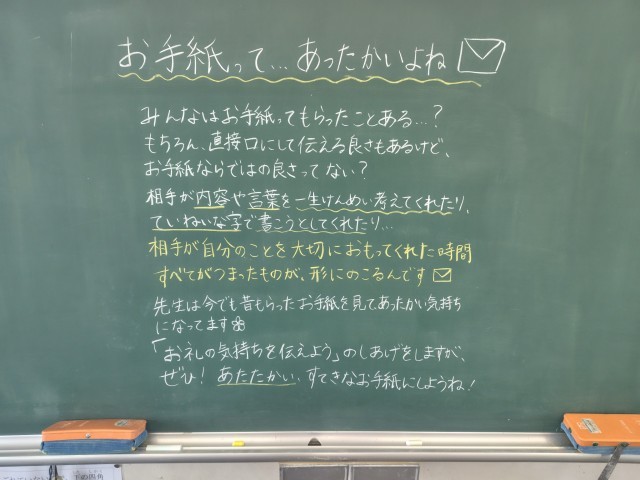 お手紙って…あったかいよね
みんなはお手紙ってもらったことある…?
もちろん、直接口にして伝える良さもあるけど、
お手紙ならではの良さってない?
相手が内容や言葉を一生けんめい考えてくれたり、
ていねいな字で書こうとしてくれたり…
相手が自分のことを大切におもってくれた時間
すべてがつまったものが、形にのこるんです
先生は今でも昔もらったお手紙を見て、あったかい気持ち
になってます
「お礼の気持ちを伝えよう」のしあげをしますが、
ぜひ!あたたかい、すてきなお手紙にしようね!